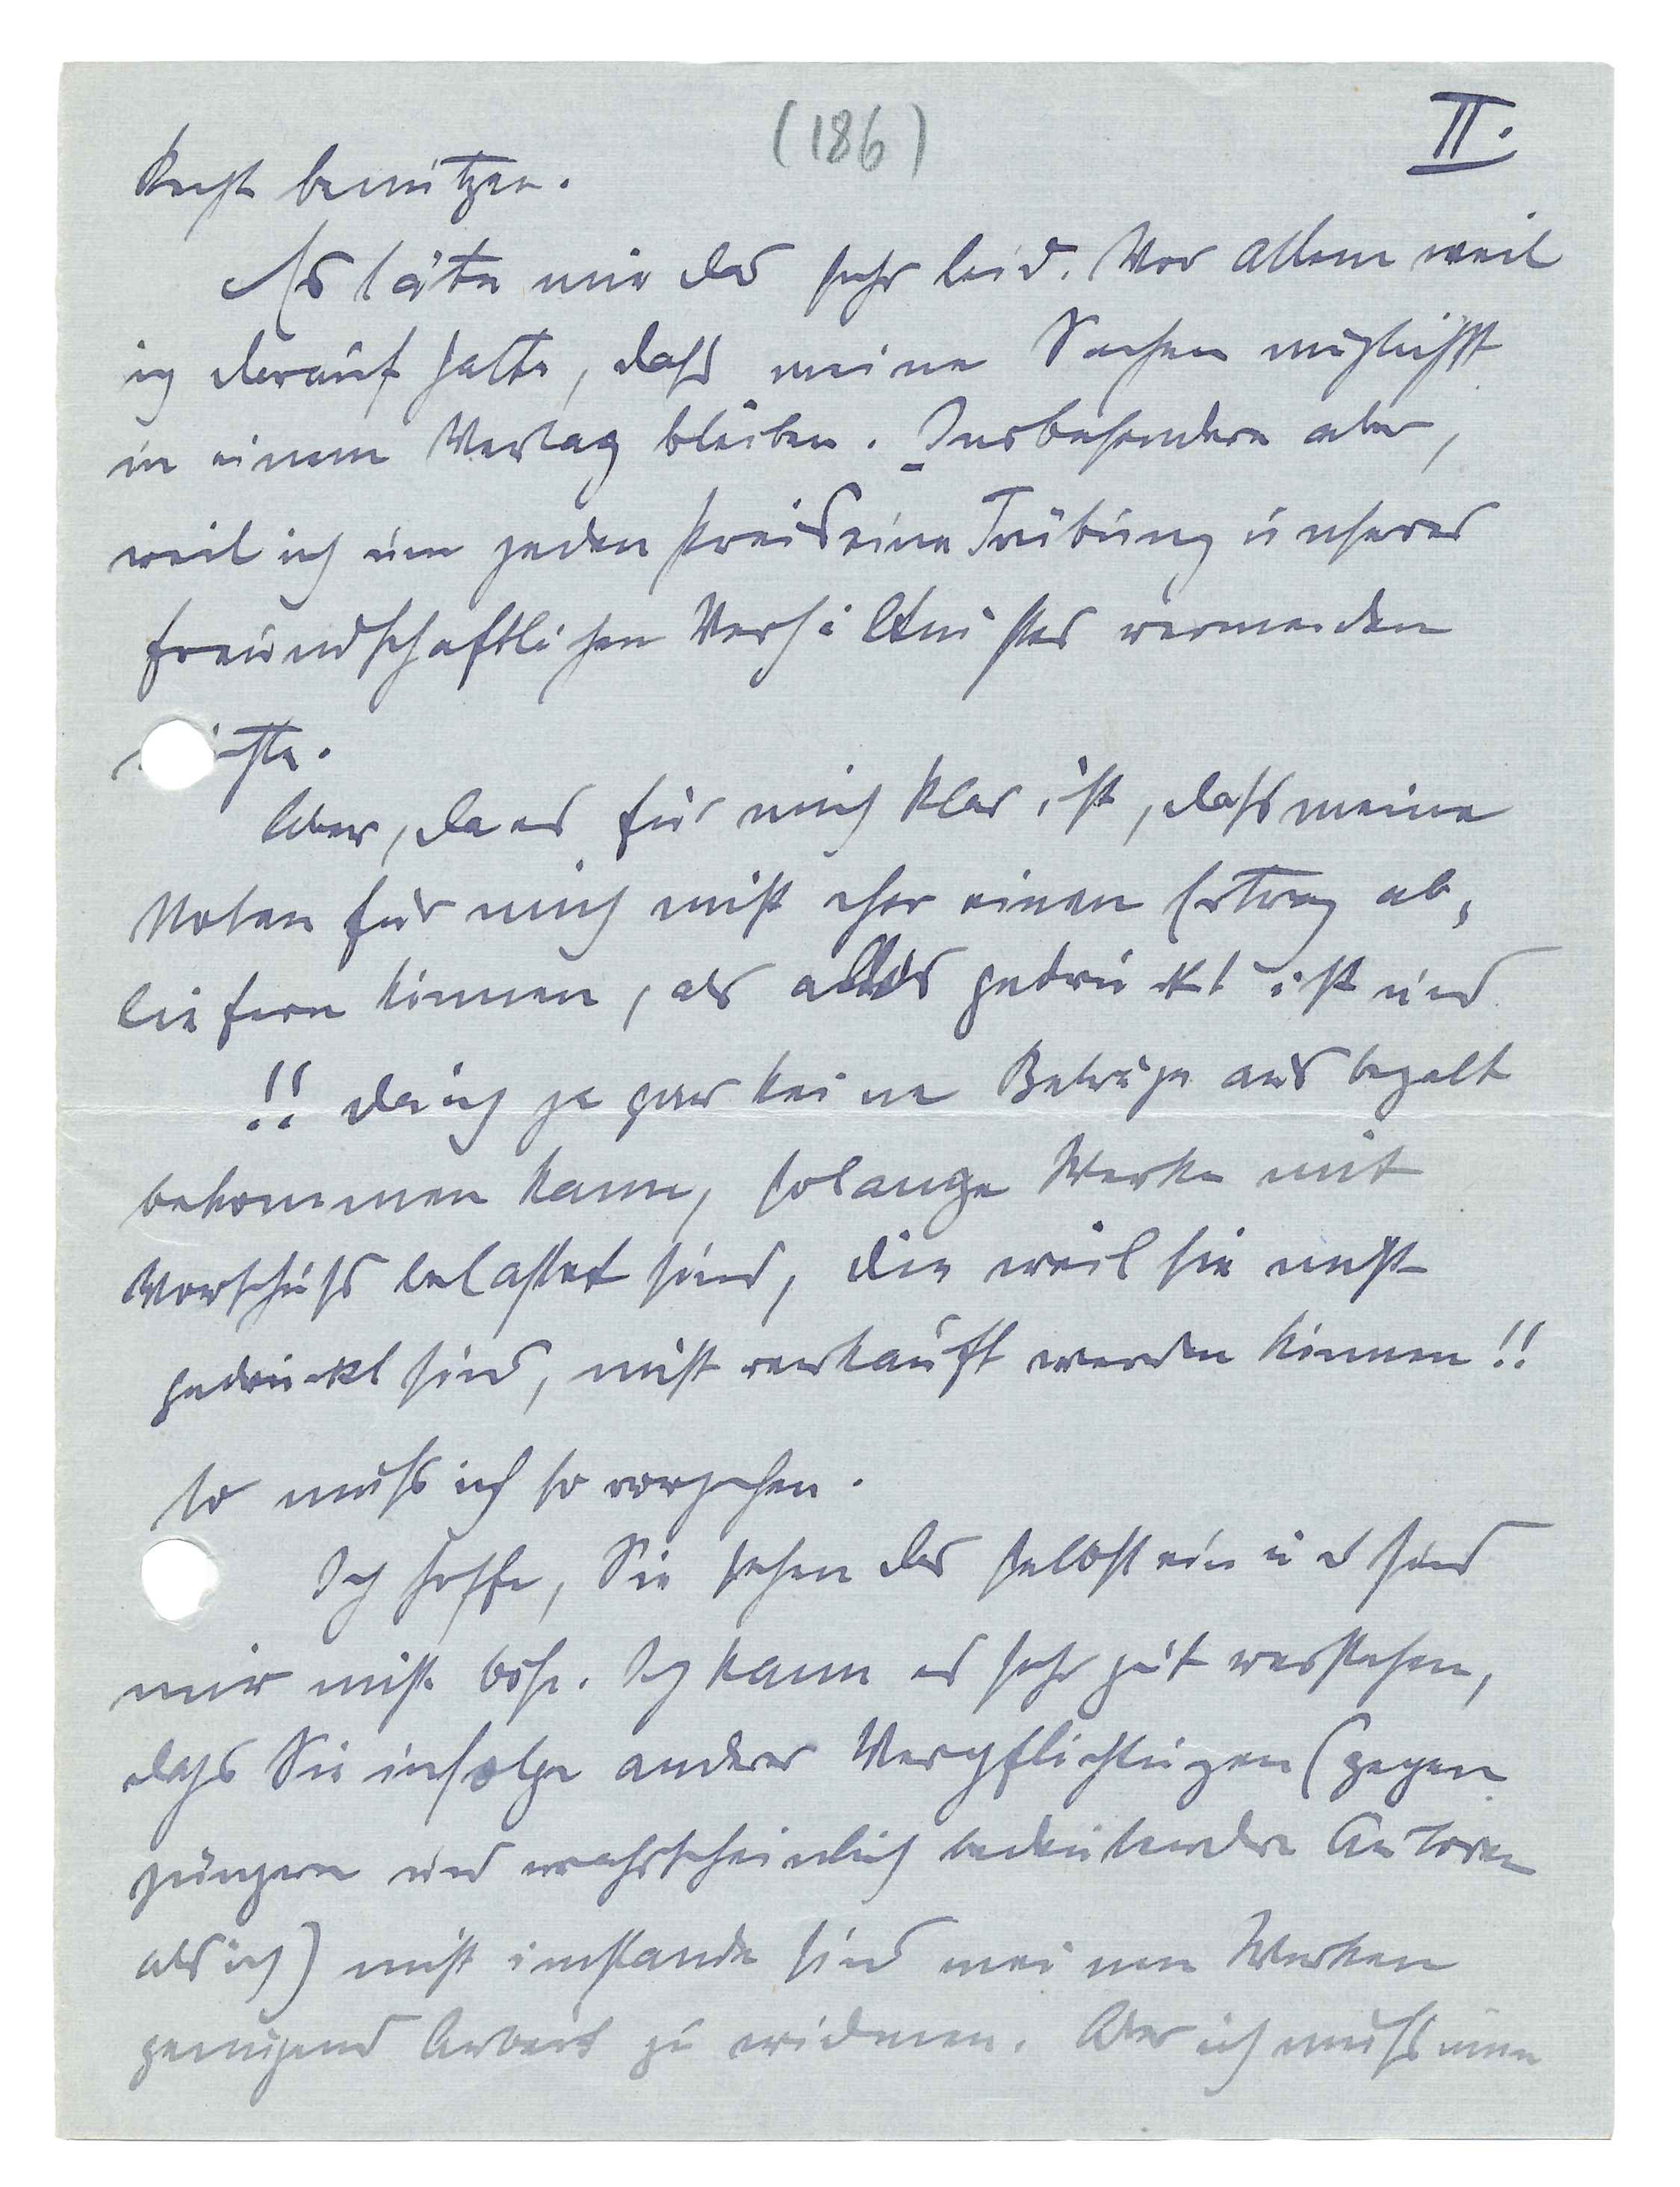 (186)
II.
Recht benützen.
Es täte mir das sehr leid. Vor allem weil
ich darauf halte, dass meine Sachen möglichst
in einem Verlag bleiben. Insbesondere aber,
weil ich um jeden Preis eine Trübung unseres
freundschaftlichen Verhältnisses vermeiden
möchte.
Aber, da es für mich klar ist, dass meine
Noten für mich nicht eher einen Ertrag ab-
liefern können, als alles gedruckt ist und
!! da ich ja gar keine Beträge ausbezalt
bekommen kann, solange Werke mit
Vorschuss belastet sind, die weil sie nicht
gedruckt sind, nicht verkauft werden können!!
so muss ich so vorgehen.
Ich hoffe, Sie sehen das selbst ein und sind
mir nicht böse. Ich kann es sehr gut verstehen,
dass Sie infolge anderer Verpflichtungen (gegen
jüngere und wahrscheinlich bedeutendere Autoren
als ich) nicht imstande sind meinen Werken
genügend Arbeit zu widmen. Aber ich muss nun